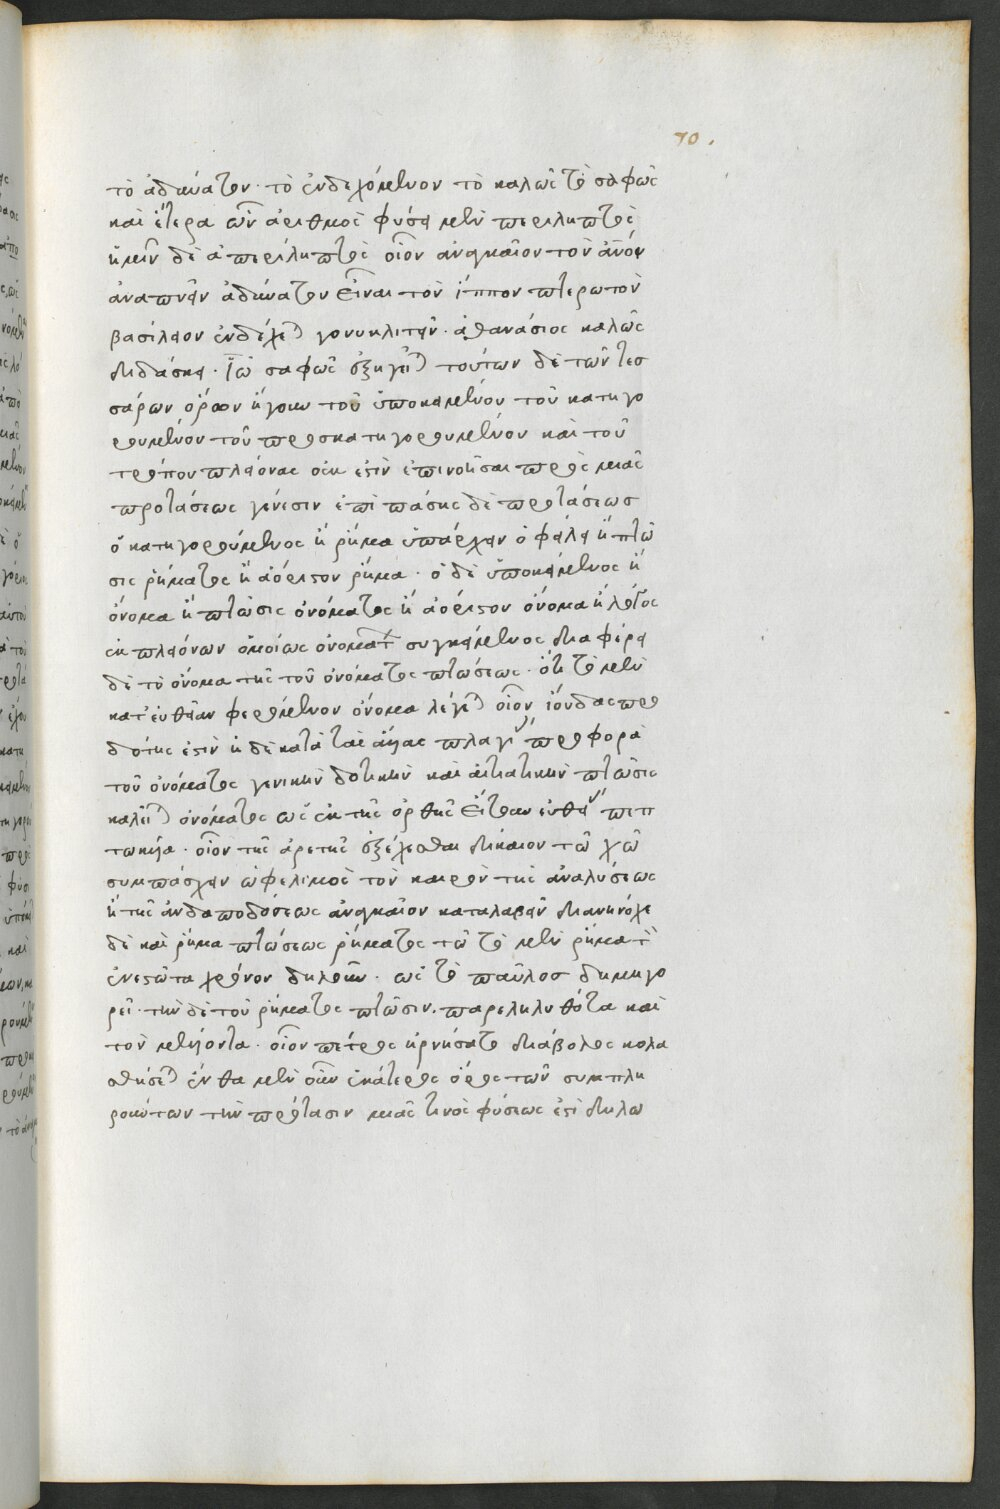 70.
τὸ ἀδύνατον· τὸ ἐνδεχόμενον τὸ καλῶς τὸ σαφῶς
καὶ ἕτερα ὧν ἀριθμὸς φύσει μὲν περιληπτὸς
ἡμῖν δὲ ἀπερίληπτος οἷον ἀναγκαῖον τὸν ἄνον
ἀναπνεῖν ἀδύνατον εἶναι τὸν ἵππον πτερωτὸν
βασίλειον ἐνδέχε) γονυκλιτεῖν· ἀθανάσιος καλῶς
διδάσκει· ἰω σαφῶς ἐξηγεῖ) τούτων δὲ τῶν τεσ
σάρων ὅρων ἤγουν τοῦ ὑποκειμένου τοῦ κατηγο
ρουμένου τοῦ προσκατηγορουμένου καὶ τοῦ
τρόπου πλείονας οὐκ ἐστὶν ἐπινοῆσαι πρὸς μιᾶς
προτάσεως γένεσιν ἐπὶ πάσης δὲ προτάσεως
ὁ κατηγορούμενος ἢ ῥῆμα ὑπάρχειν ὀφείλει ἢ πτῶ
σις ῥήματος ἢ ἀόριστον ῥῆμα· ὁ δὲ ὑποκείμενος ἢ
ὄνομα ἢ πτῶσις ὀνόματος ἢ ἀόριστον ὄνομα ἢ λόγος
ἐκ πλειόνων ὁμοίως ὀνομάτ συγκείμενος διαφέρει
δὲ τὸ ὄνομα τῆς τοῦ ὀνόματος πτώσεως· ὅτι τὸ μὲν
κατ' εὐθεῖαν φερόμενον ὄνομα λέγε) οἷον ἰούδας προ
δότης ἐστὶν ἡ δὲ κατὰ τὰς ἄλλας πλαγί προφορὰ
τοῦ ὀνόματος γενικὴν δοτικὴν καὶ αἰτιατικὴν πτῶσις
καλεῖ) ὀνόματος ὡς ἐκ τῆς ὀρθῆς εἴτουν εὐθεί πεπ
τωκυῖα· οἷον τῆς ἀρετῆς ἐξέχεσθαι δίκαιον τῶ χῶ
συμπάσχειν ὠφέλιμος τὸν καιρὸν τῆς ἀναλύσεως
ἢ τῆς ἀνταποδόσεως ἀναγκαῖον καταλαβεῖν διανήνοχε
δὲ καὶ ῥῆμα πτώσεως ῥήματος τῶ τὸ μὲν ῥῆμα τὸ
ἐνεστῶτα χρόνον δηλοῦν· ὡς τὸ παῦλος δημηγο
ρεῖ· τὴν δὲ τοῦ ῥήματος πτῶσιν. παρεληλυθότα καὶ
τὸν μέλλοντα· οἷον πέτρος ἠρνήσατο διάβολος κολα
σθήσε) ἔνθα μὲν οὖν ἑκάτερος ὅρος τῶν συμπλη
ρούντων τὴν πρότασιν μιᾶς τινὸς φύσεως ἐστὶ δηλω